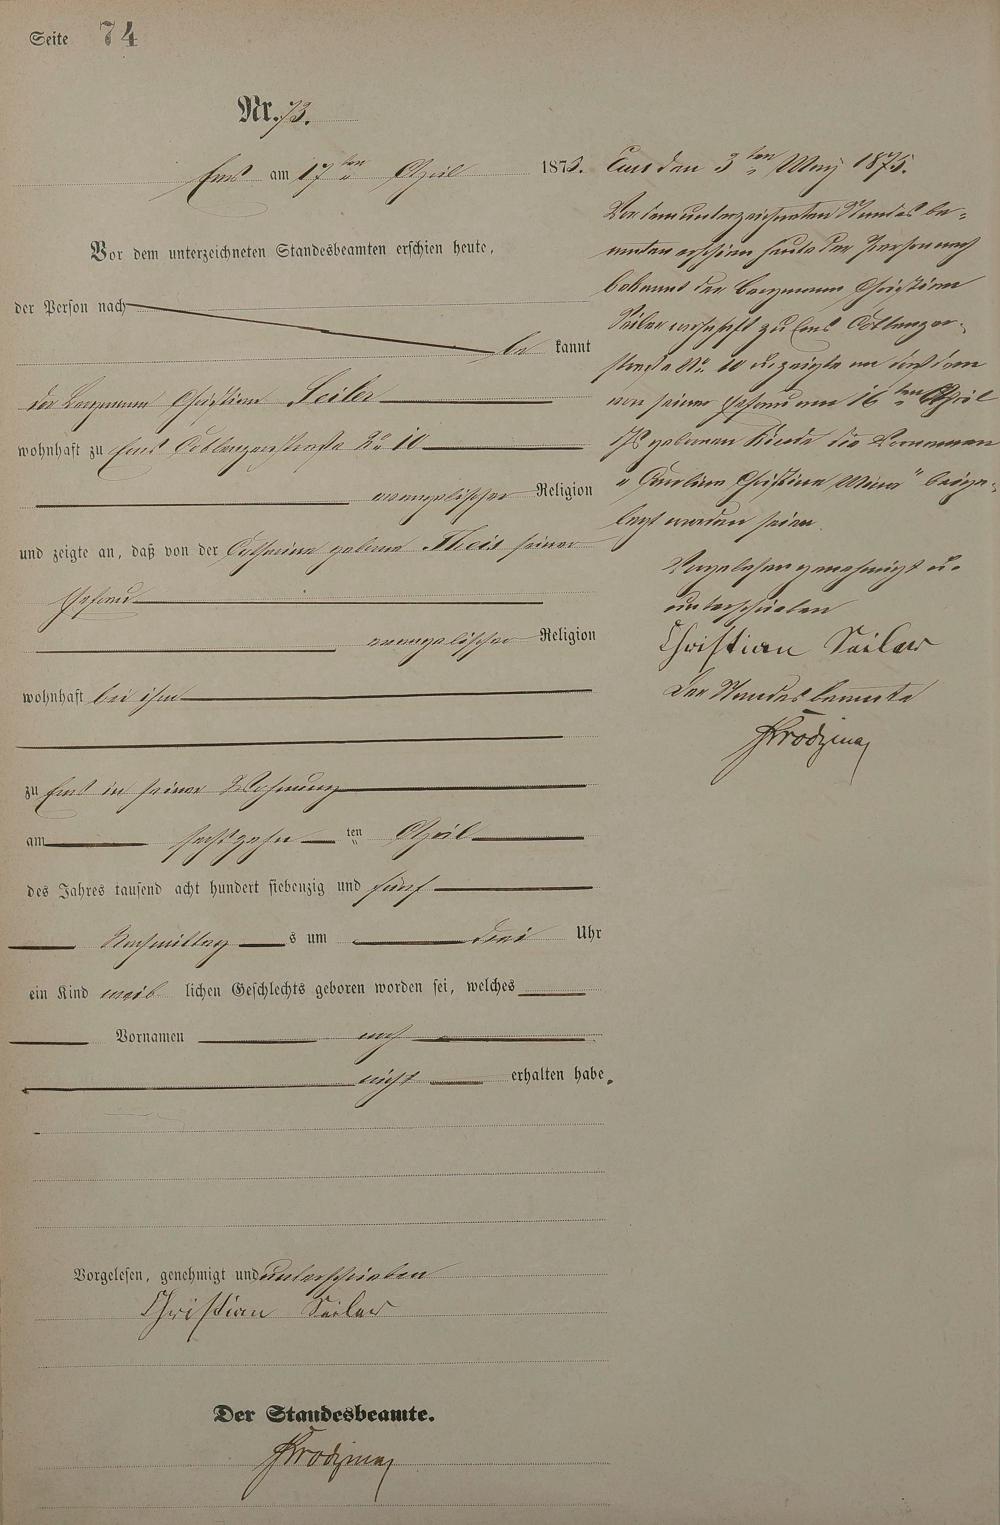 Seite 74
Nr. 73.
Ems am 17ten April 1875.
Vor dem unterzeichneten Standesbeamten erschien heute,
der Person nach
be kannt
der Bergmann Christian Seiler
wohnhaft zu Ems Coblenzerstraße No 10
evangelischer Religion
und zeigte an, daß von der Catharina geborne Theis seiner
Ehefrau
evangelischer Religion
wohnhaft bei ihm
zu Ems in seiner Wohnung
am sechszehn ten April
des Jahres tausend acht hundert siebenzig und fünf
Nachmittag s um drei Uhr
ein Kind weib lichen Geschlechts geboren worden sei, welches
Vornamen noch
nicht erhalten habe.
Vorgelesen, genehmigt und unterschrieben
Christian Seiler
Der Standesbeamte.
Ems den 3ten May 1875.
Vor dem unterzeichneten Standesbe-
amten erschien heute der Person nach
bekannt der Bergmann Christian
Seiler wohnhaft zu Ems Coblenzer-
straße No. 10 u. zeigte an daß dem
von seiner Ehefrau am 16ten April
Js geborenen Kinde die Vornamen
"Caroline Christine Mina" beige-
legt worden seien.
Vorgelesen genehmigt u.
unterschrieben
Christian Seiler
Der Standesbeamte